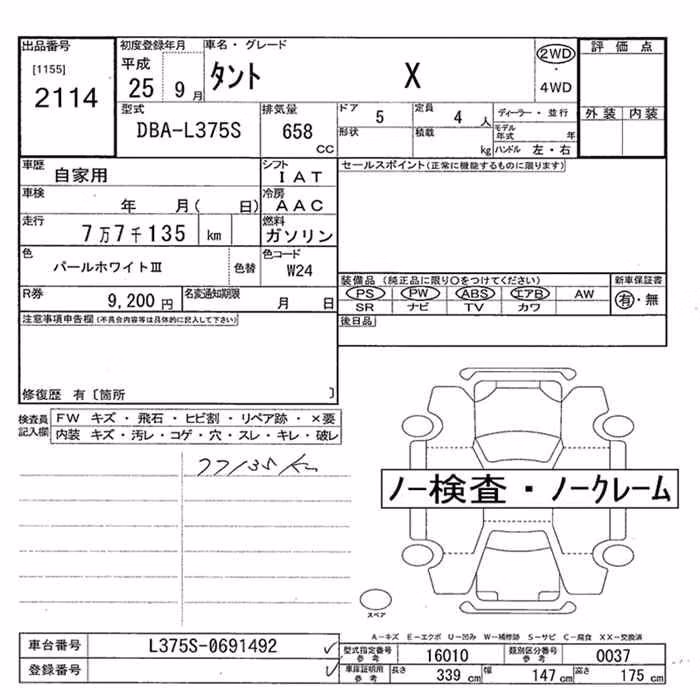 出品番号
[1155]
2114
初度登録年月
平成
25 9月
車名・グレード
タント X
2WD
・
4WD
評価点
外装 内装
型式
DBA-L375S
排気量
658
CC
ドア 5
定員 4 人
形状
積載 kg
ディーラー・並行
モデル年式 年
ハンドル 左・右
車歴
自家用
シフト
IAT
車検
年 月( 日)
冷房
AAC
走行
7万7千135 km
燃料
ガソリン
色
パールホワイトⅢ
色替
色コード
W24
R券
9,200 円
名変通知期限
月 日
セールスポイント(正常に機能するものに限ります)
装備品 (純正品に限り○をつけてください)
新車保証書
PS PW ABS エアB AW
SR ナビ TV カワ
有・無
後日品
注意事項申告欄(不具合内容等は具体的に記入して下さい)
修復歴 有〔箇所 〕
検査員記入欄
FW キズ・飛石・ヒビ割・リペア跡・×要
内装 キズ・汚レ・コゲ・穴・スレ・キレ・破レ
77135km
ノー検査・ノークレーム
スペア
A-キズ E-エクボ U-凹み W-補修跡 S-サビ C-腐食 XX-交換済
車台番号
L375S-0691492
登録番号
型式指定番号
参考
16010
類別区分番号
参考
0037
車庫証明用
参考
長さ 339 cm 幅 147 cm 高さ 175 cm